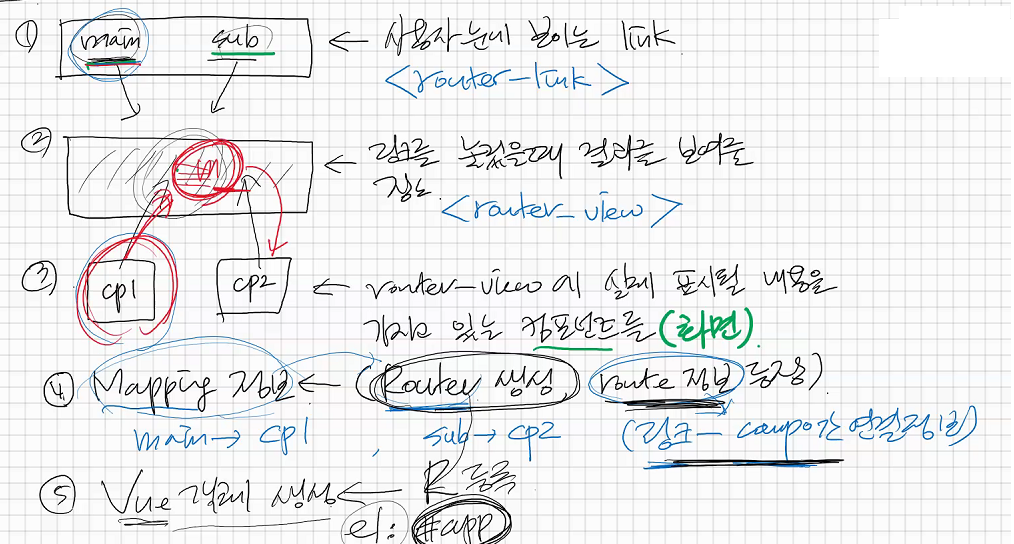 ① main sub ← 사용자 눈에 보이는 link
<router-link>
② ← 링크를 눌렀을때 결과를 보여줄
장소
<router-view>
③ cp1 cp2 ← router-view에 실제 표시될 내용을
가지고 있는 컴포넌트들 (화면)
④ Mapping 정보 ← (Router 생성, route 정보 등록)
main → cp1, sub → cp2 (링크 - compo간 연결정보)
⑤ Vue 객체 생성 ← R 등록
el: #app